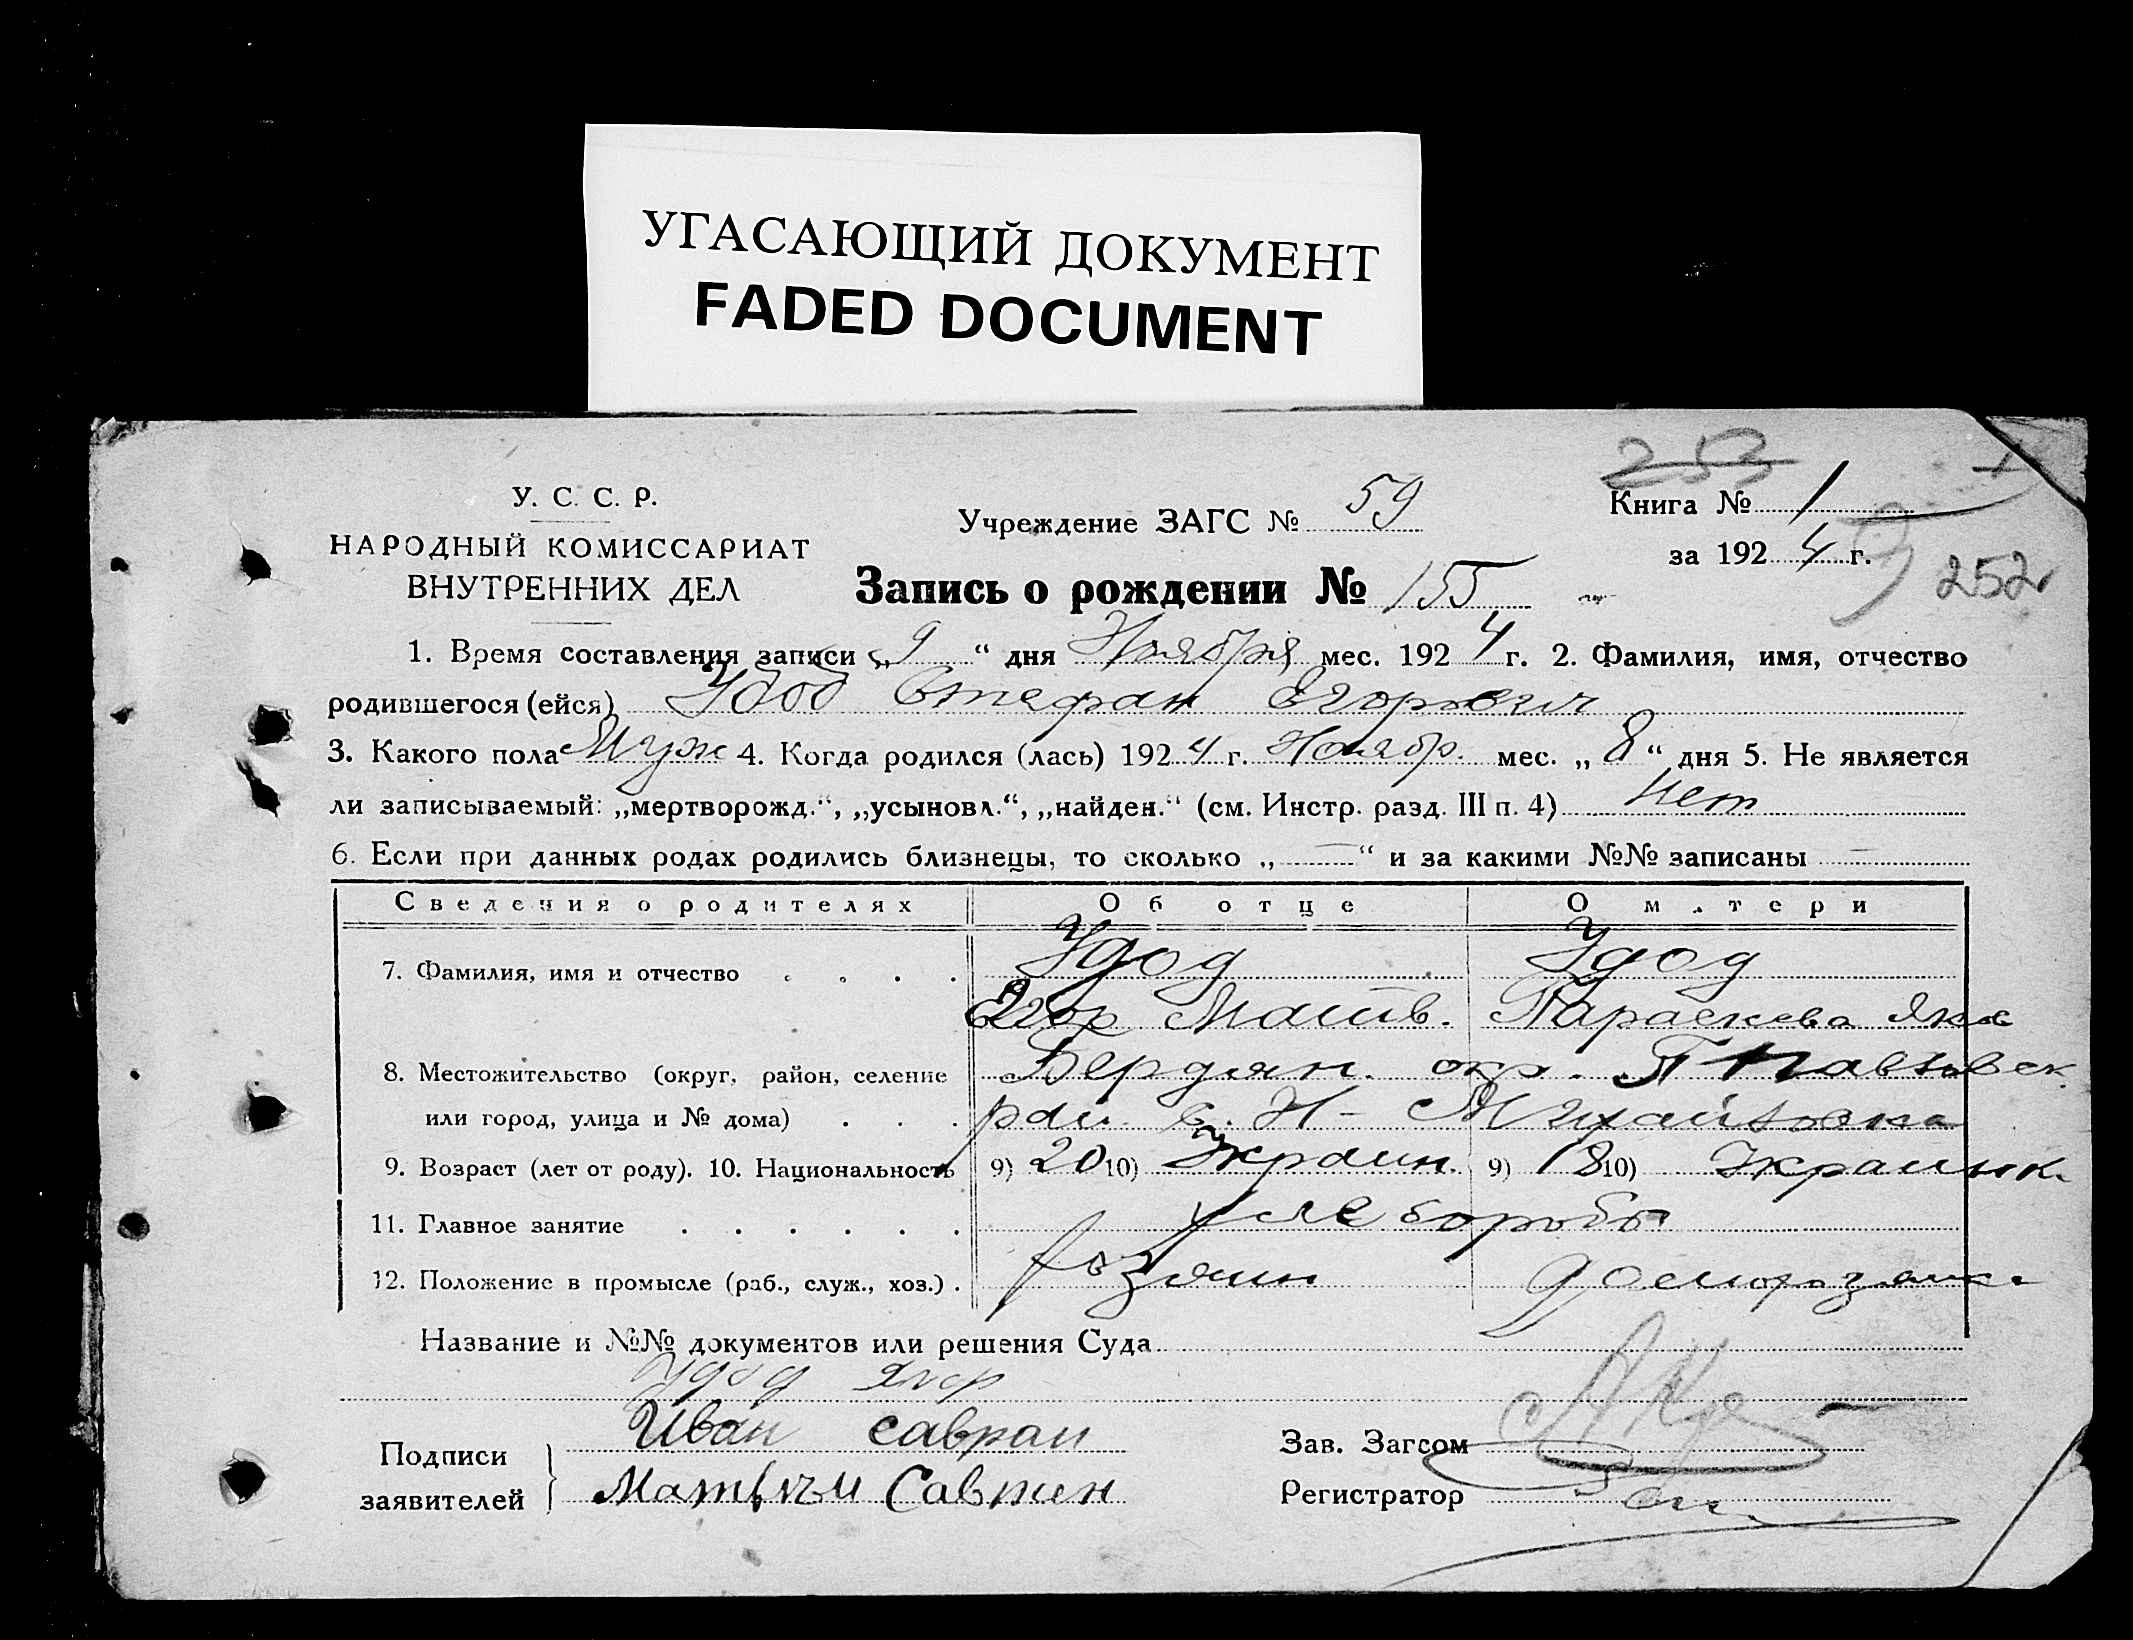 УГАСАЮЩИЙ ДОКУМЕНТ
FADED DOCUMENT
253
У. С. С. Р.
НАРОДНЫЙ КОМИССАРИАТ
ВНУТРЕННИХ ДЕЛ
Учреждение ЗАГС № 59
Книга № 1
за 1924 г.
252
Запись о рождении № 155
1. Время составления записи „9“ дня Ноября мес. 1924 г. 2. Фамилия, имя, отчество
родившегося (ейся) Удод Стефан Егорович
3. Какого пола Муж 4. Когда родился (лась) 1924 г. Ноябр. мес. „8“ дня 5. Не является
ли записываемый: „мертворожд.“, „усыновл.“, „найден.“ (см. Инстр. разд. III п. 4) Нет
6. Если при данных родах родились близнецы, то сколько „—“ и за какими №№ записаны —
Сведения о родителях Об отце О матери
7. Фамилия, имя и отчество . . . . Удод Удод
Егор Матв. Параскева Яков
8. Местожительство (округ, район, селение Бердян. окр.
или город, улица и № дома) . . . рай. с. Н-Михайловка
9. Возраст (лет от роду). 10. Национальность 9) 20 10) Украин. 9) 18 10) Украинк.
11. Главное занятие . . . . . . хлебороб
12. Положение в промысле (раб., служ., хоз.) . хозяин домохозяйка
Название и №№ документов или решения Суда
Удод Егор
Подписи
заявителей
Иван Савран
Савтин
Зав. Загсом
Регистратор